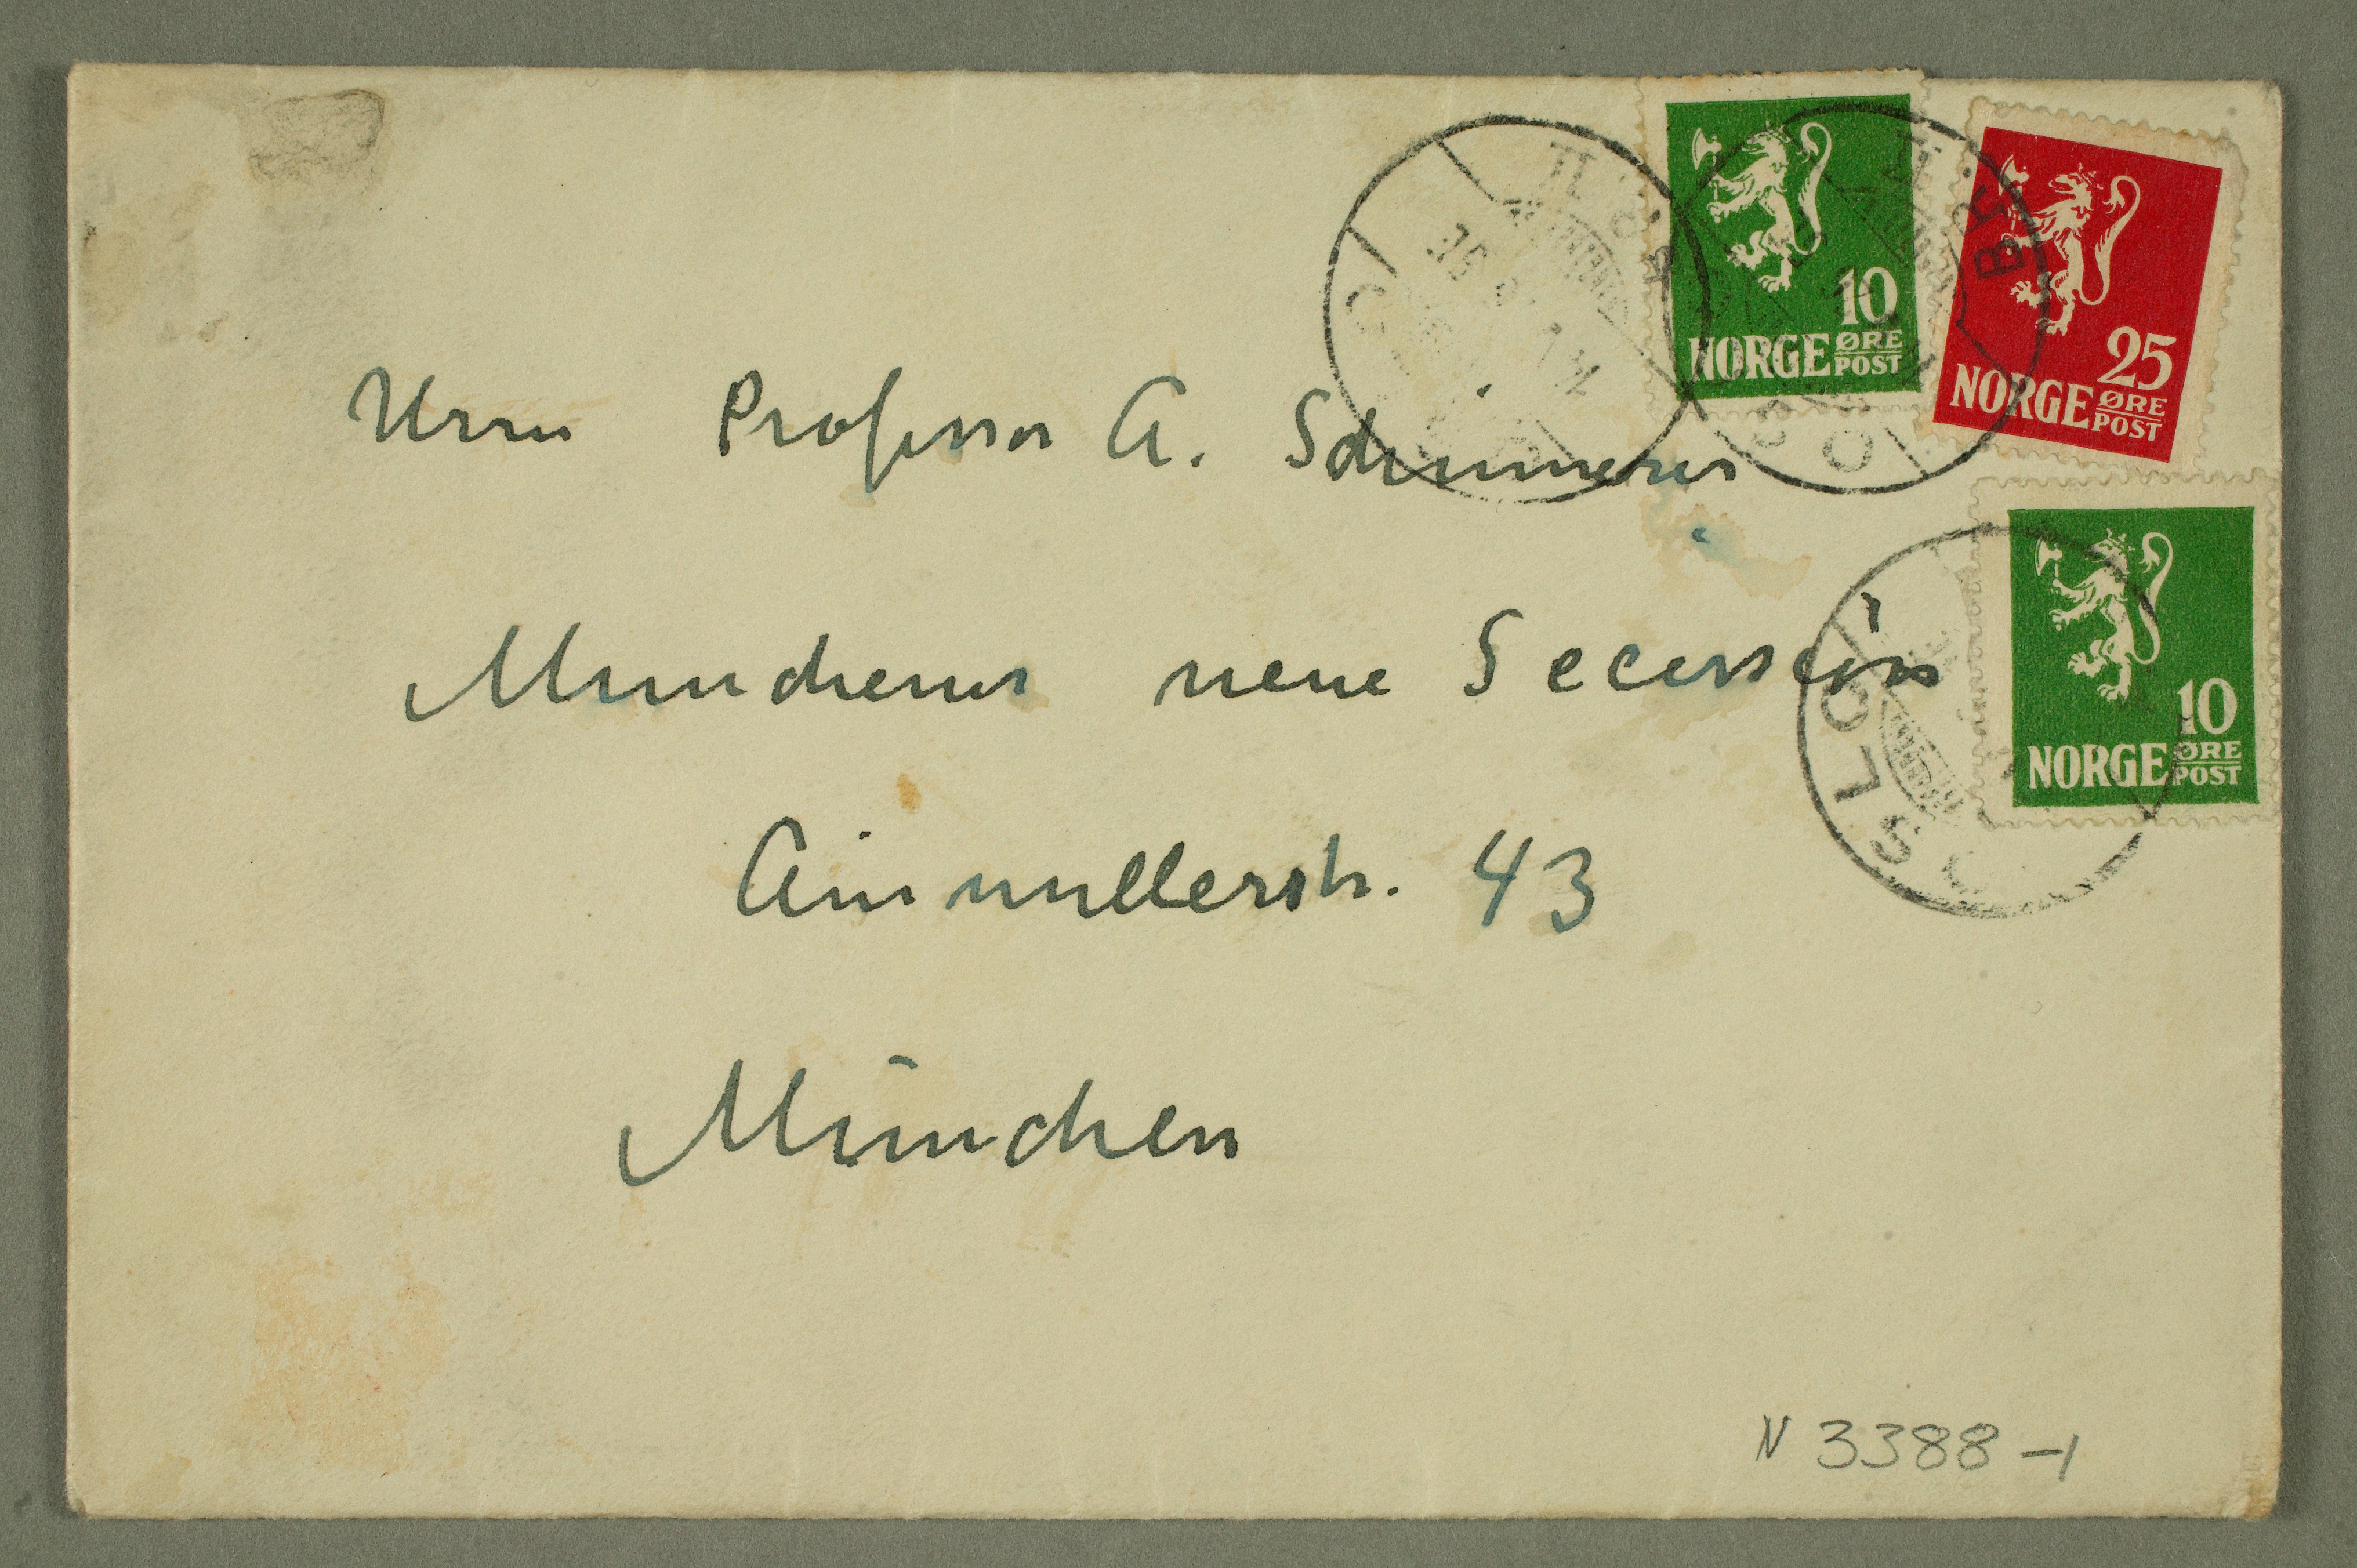 Herrn Professor A. Schinnerer
Münchener neue Secession
Ainmullerstr. 43
München
10
NORGE ØRE POST
25
NORGE ØRE POST
10
NORGE ØRE POST
OSLO
BR.
N 3388-1